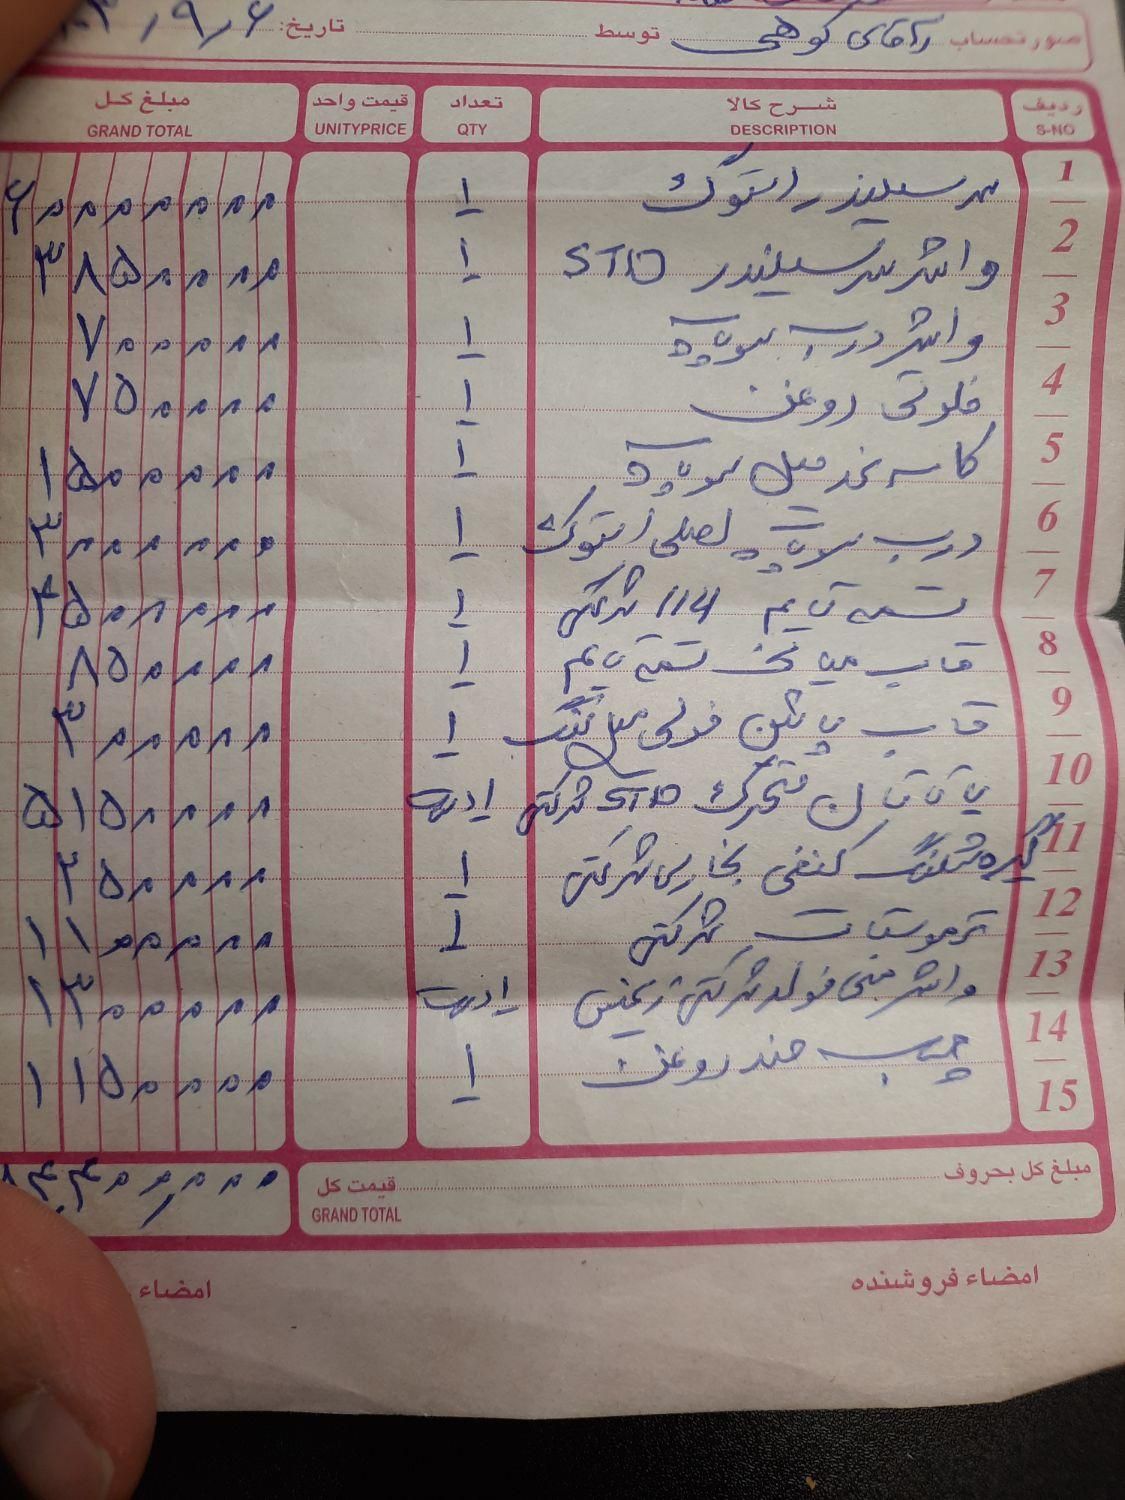 صورتحساب آقای کوهی توسط تاریخ: ۹/۶
ردیف شرح کالا تعداد قیمت واحد مبلغ کل
S-NO DESCRIPTION QTY UNITYPRICE GRAND TOTAL
1 سرسیلندر استوک ۱ ۶۰۰۰۰۰۰۰
2 واشر سرسیلندر STD ۱ ۳۸۵۰۰۰۰
3 واشر درب سوپاپ ۱ ۷۰۰۰۰۰
4 روغن ۱ ۷۵۰۰۰۰
5 کاسه نمد میل سوپاپ ۱ ۱۵۰۰۰۰۰
6 درب سوپاپ اصلی استوک ۱ ۳۰۰۰۰۰۰
7 تسمه تایم 114 شرکتی ۱ ۴۵۰۰۰۰۰
8 قاب میانی تسمه تایم ۱ ۸۵۰۰۰۰
9 قاب پائین فولی میل لنگ ۱ ۳۰۰۰۰۰
10 یاتاقان متحرک STD شرکتی ۱دست ۵۱۵۰۰۰۰
11 گیره شلنگ بخاری شرکتی ۱ ۲۵۰۰۰۰
12 ترموستات شرکتی ۱ ۱۱۰۰۰۰۰
13 واشر منی فولد شرکتی ۱دست ۱۳۰۰۰۰۰
14 چسب روغن ۱ ۱۱۵۰۰۰۰
15
مبلغ کل بحروف قیمت کل
GRAND TOTAL
امضاء فروشنده امضاء